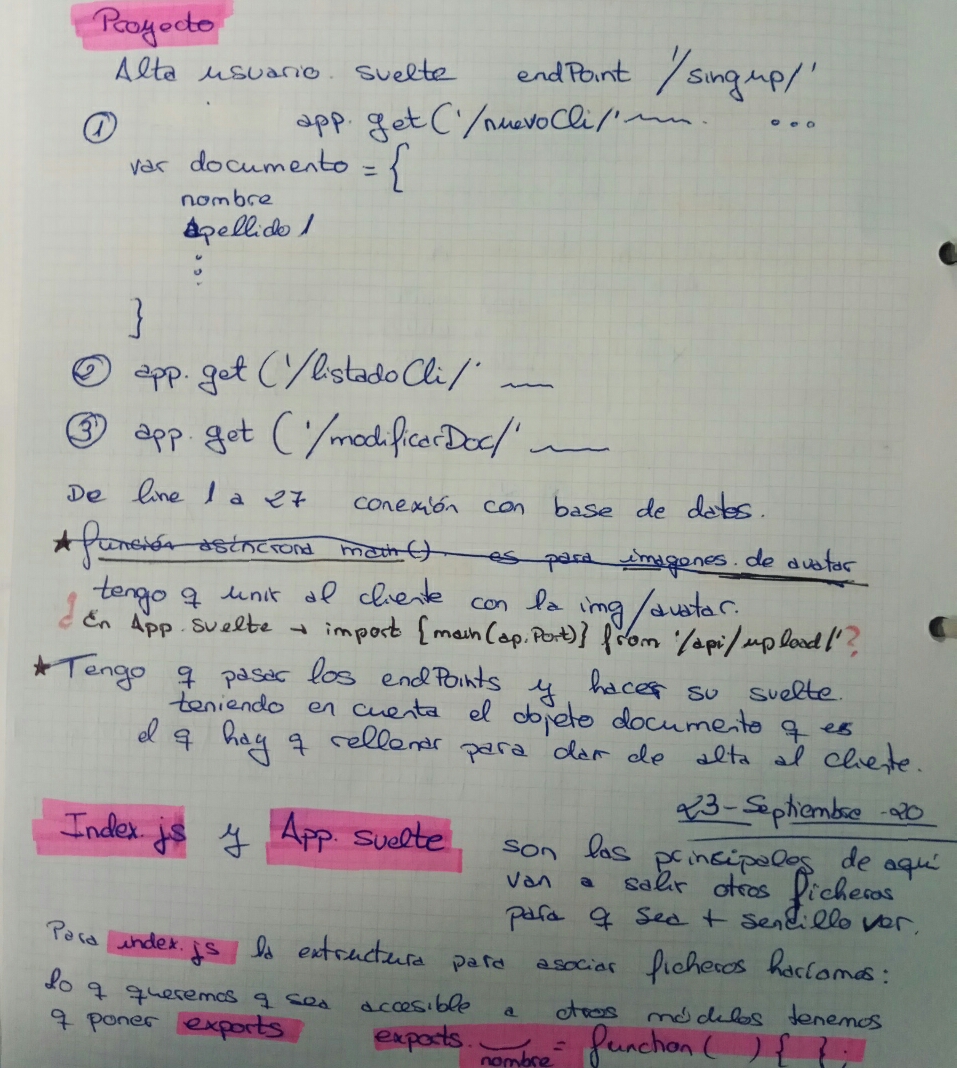 Proyecto
Alta usuario. svelte endPoint '/singup/'
① app. get ('/nuevoCli/' ...
var documento = {
nombre
Apellido 1
:
}
② app. get ('/listadoCli/'
③ app. get ('/modificarDoc/'
De line 1 a 27 conexión con base de datos.
★ función asíncrona main() es para imagenes de avatar
tengo q unir al cliente con la img/avatar.
¿ En App. svelte → import {main(ap.Port)} from '/api/upload/'?
★ Tengo q pasar los endPoints y hacer su svelte.
teniendo en cuenta el objeto documento q es
el q hay q rellenar para dar de alta al cliente.
23-Septiembre-20
Index.js y App. svelte son los principales de aquí
van a salir otros ficheros
para q sea + sencillo ver.
Para index.js la extructura para asociar ficheros haríamos:
lo q queremos q sea accesible a otros módulos tenemos
q poner exports exports. = function( ) { };
nombre